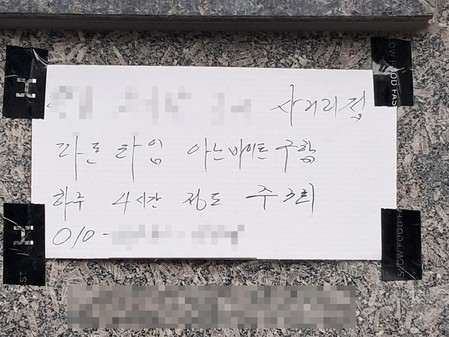 사거리점
파트 타임 아르바이트 구함
하루 4시간 정도 주 3회
010-
SLOW FOOD FA